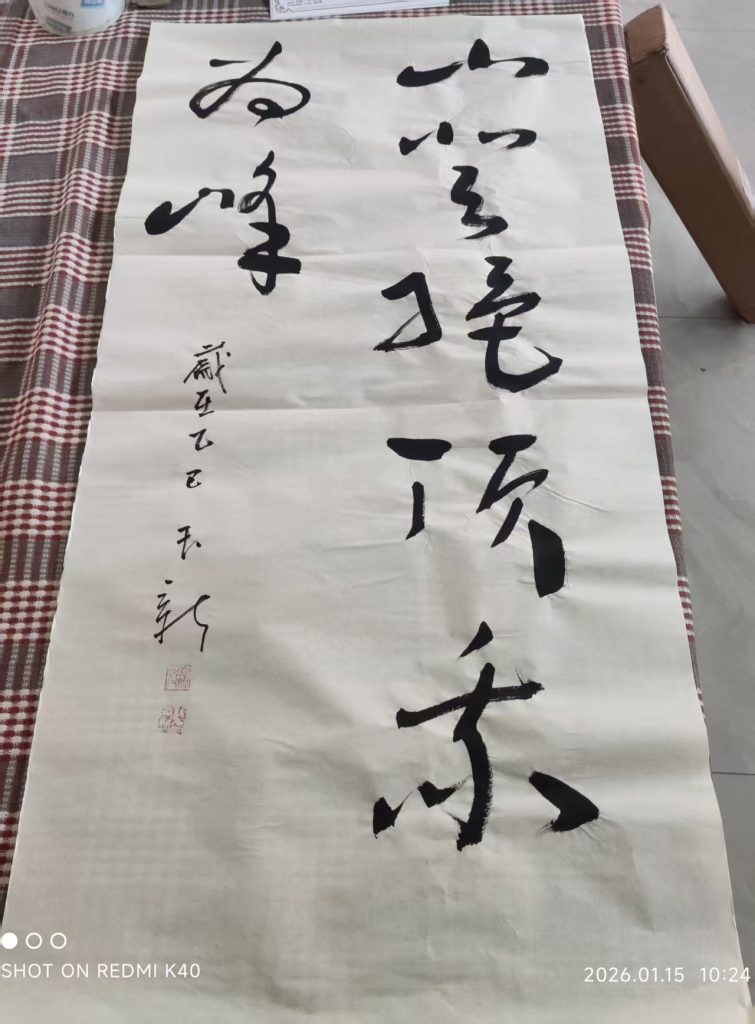 山登绝顶我
为峰
歲在乙巳 玉新
SHOT ON REDMI K40
2026.01.15 10:24